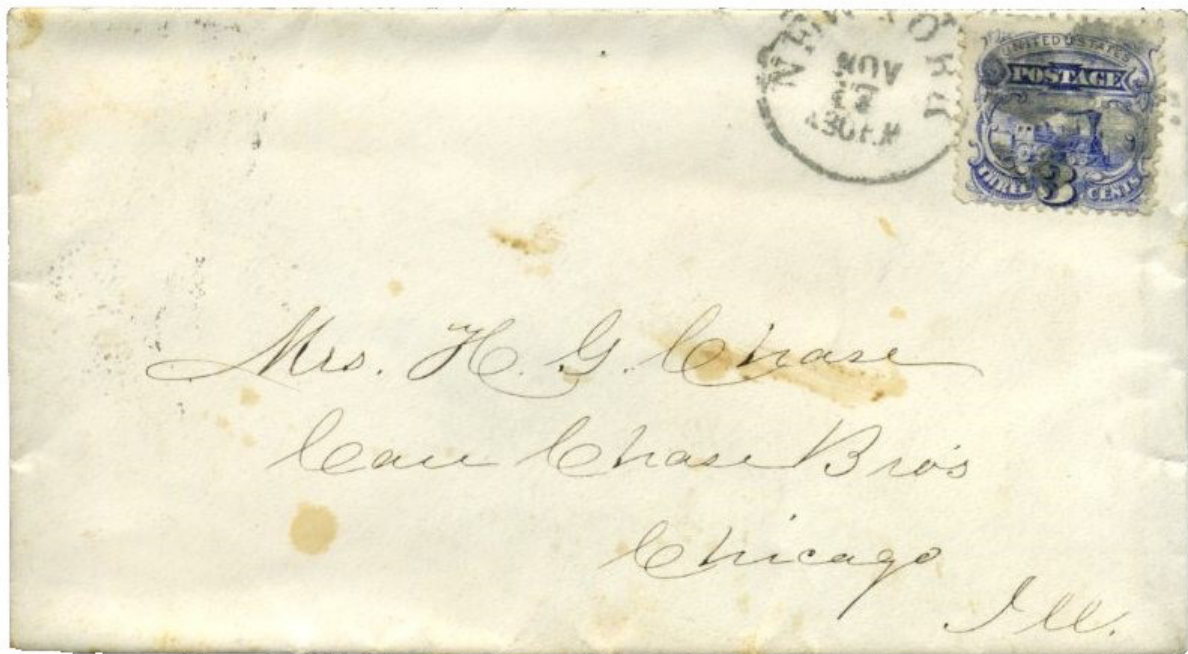 NEW YORK
NOV
4 30 P.M
UNITED STATES
POSTAGE
THREE 3 CENTS
Mrs. H. G. Chase
Care Chase Bro's
Chicago
Ill.